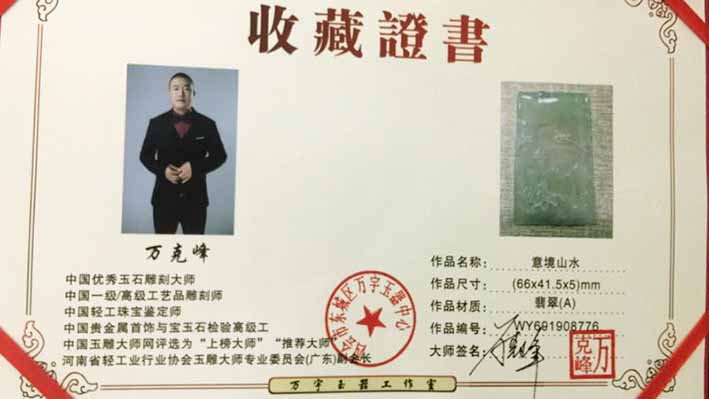 收藏證書
万克峰
中国优秀玉石雕刻大师
中国一级/高级工艺品雕刻师
中国轻工珠宝鉴定师
中国贵金属首饰与宝玉石检验高级工
中国玉雕大师网评选为“上榜大师”“推荐大师”
河南省轻工业行业协会玉雕大师专业委员会(广东)副会长
会市东城区万宇玉器中心
作品名称: 意境山水
作品尺寸: (66x41.5x5)mm
作品材质: 翡翠(A)
作品编号: WY691908776
大师签名:
万克峰
万宇玉器工作室